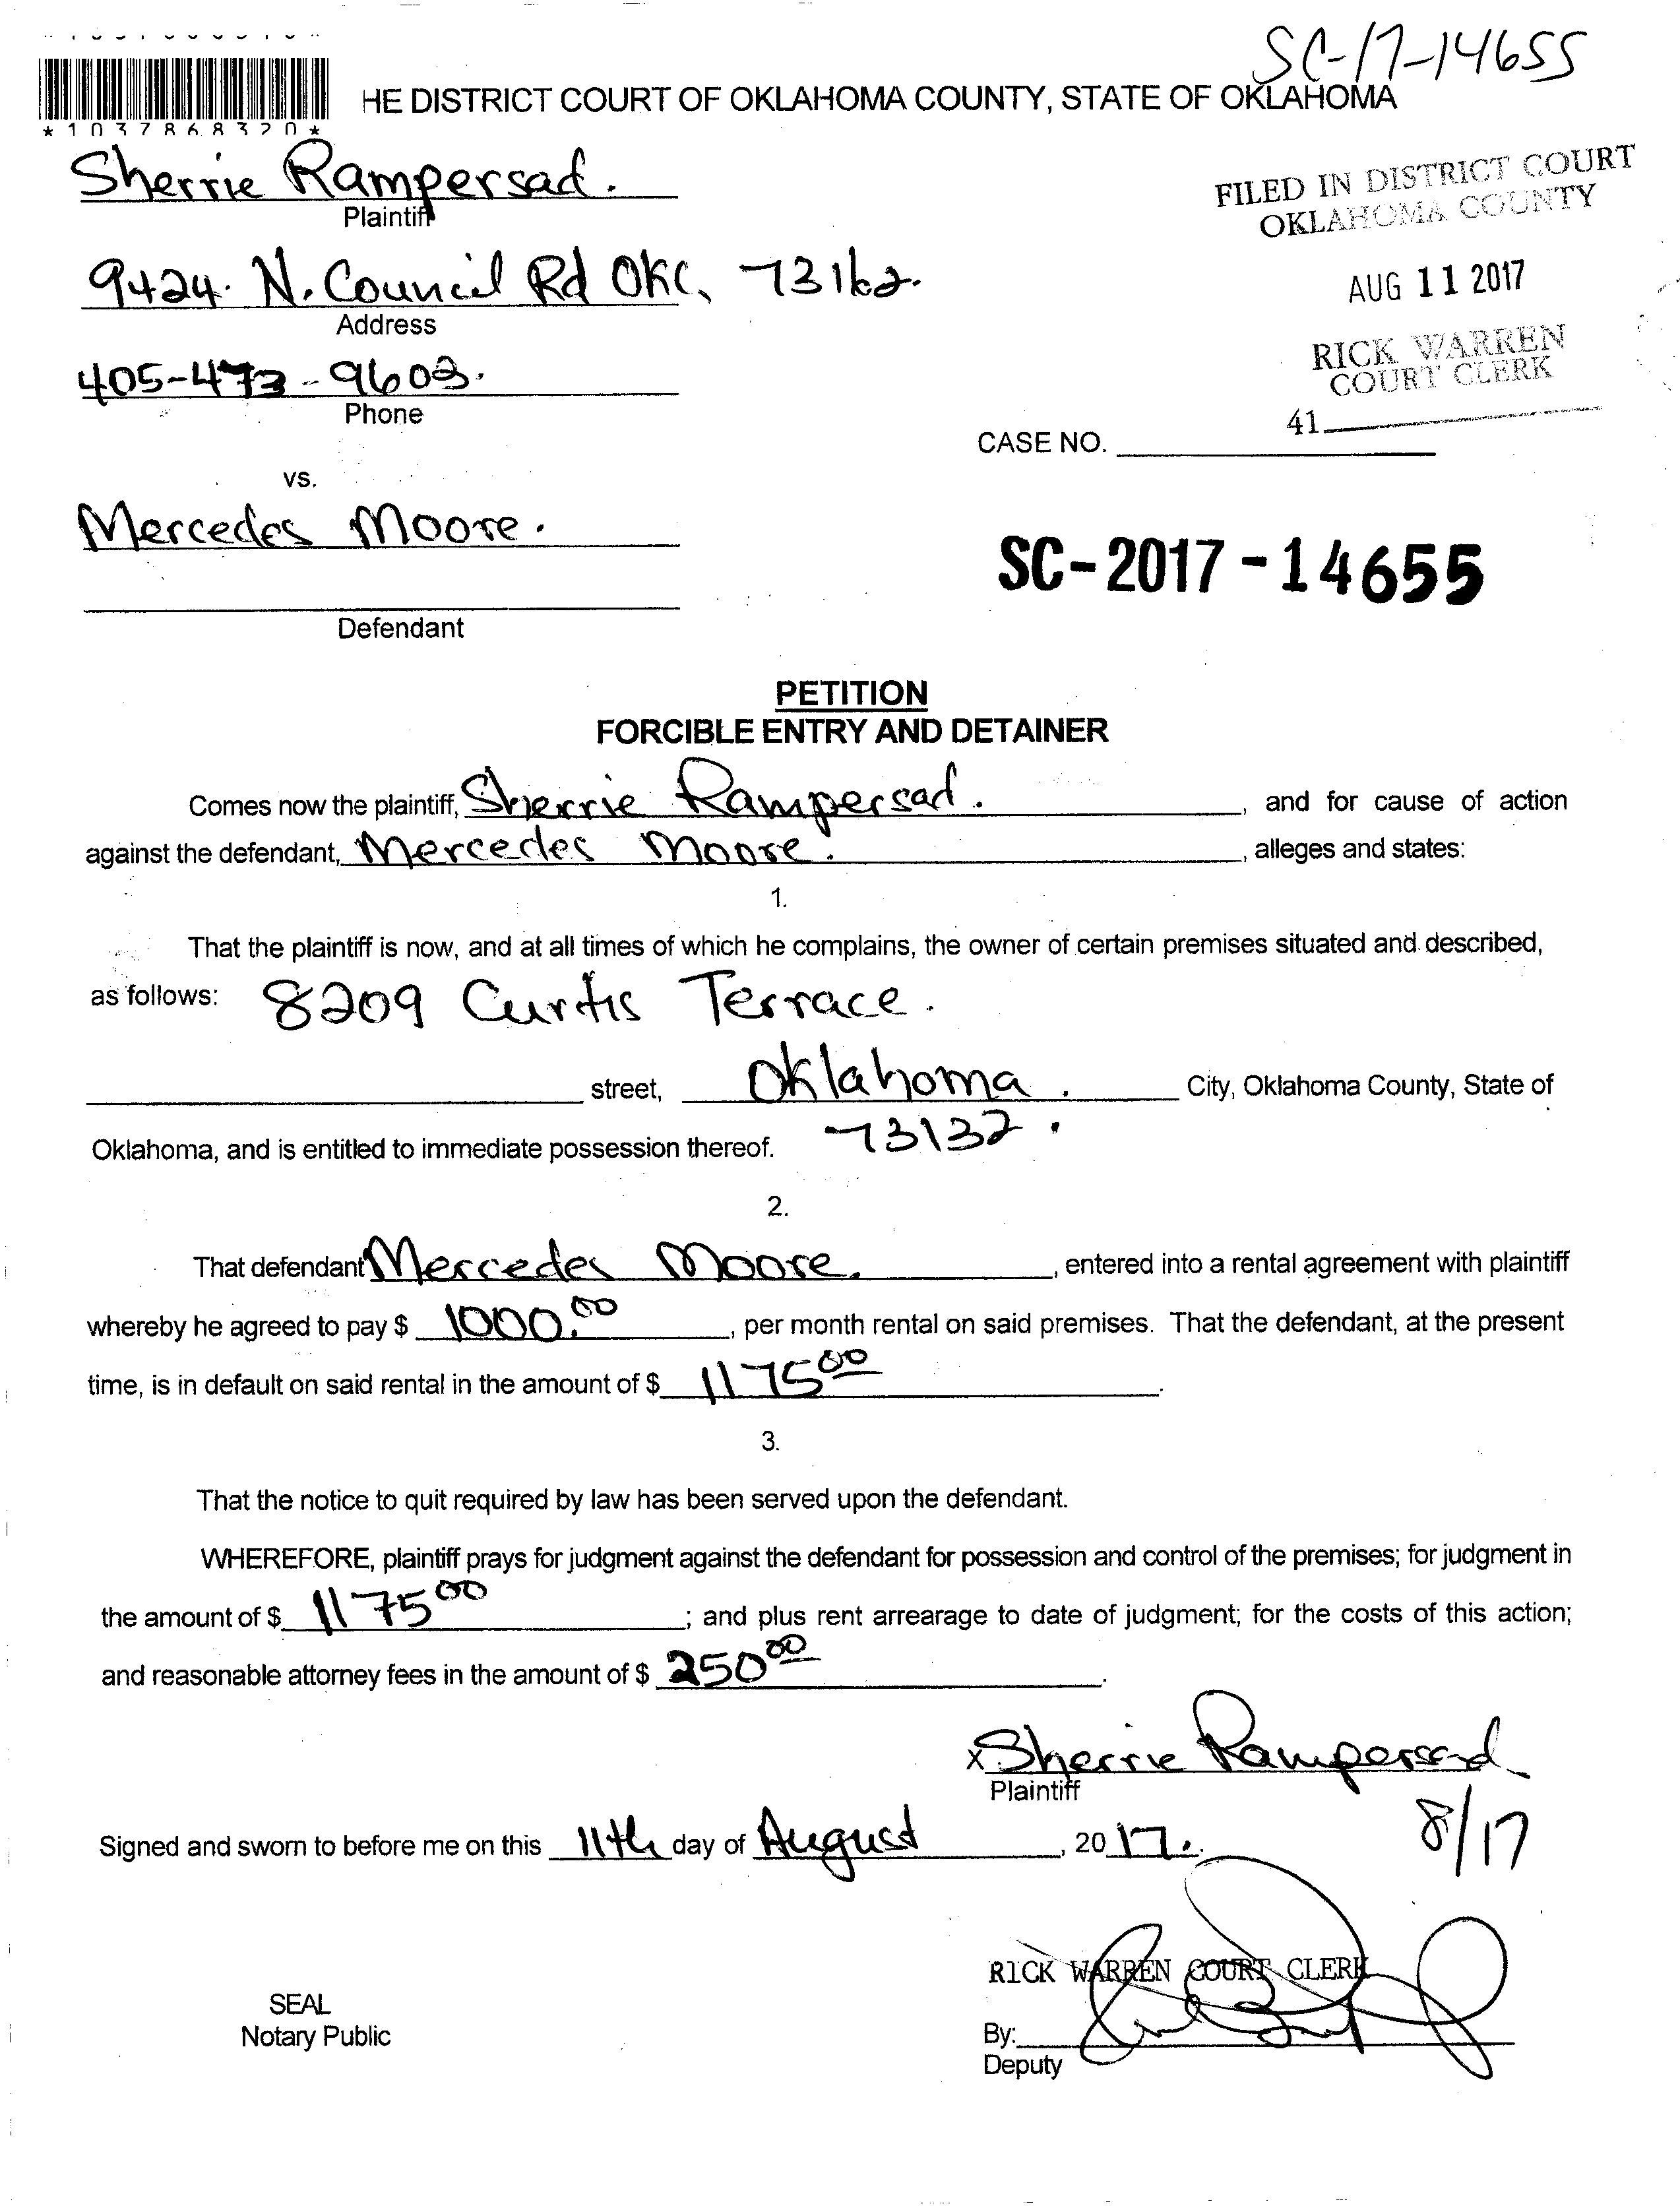 SC-17-14655
HE DISTRICT COURT OF OKLAHOMA COUNTY, STATE OF OKLAHOMA
*1037868320*
Sherrie Rampersad.
Plaintiff
FILED IN DISTRICT COURT
OKLAHOMA COUNTY
9424. N. Council Rd OKC, 73162.
Address
AUG 11 2017
RICK WARREN
COURT CLERK
405-473-9603.
Phone
41
CASE NO.
vs.
Mercedes Moore.
SC-2017-14655
Defendant
PETITION
FORCIBLE ENTRY AND DETAINER
Comes now the plaintiff, Sherrie Rampersad. , and for cause of action
against the defendant, Mercedes Moore. , alleges and states:
1.
That the plaintiff is now, and at all times of which he complains, the owner of certain premises situated and described,
as follows: 8209 Curtis Terrace.
street, Oklahoma. City, Oklahoma County, State of
Oklahoma, and is entitled to immediate possession thereof. 73132.
2.
That defendant Mercedes Moore. , entered into a rental agreement with plaintiff
whereby he agreed to pay $ 1000.00 , per month rental on said premises. That the defendant, at the present
time, is in default on said rental in the amount of $ 1175 00 .
3.
That the notice to quit required by law has been served upon the defendant.
WHEREFORE, plaintiff prays for judgment against the defendant for possession and control of the premises; for judgment in
the amount of $ 1175 00 ; and plus rent arrearage to date of judgment; for the costs of this action;
and reasonable attorney fees in the amount of $ 250 00 .
x Sherrie Rampersad
Plaintiff
8/17
Signed and sworn to before me on this 11th day of August , 20 17.
RICK WARREN COURT CLERK
SEAL
Notary Public
By:
Deputy